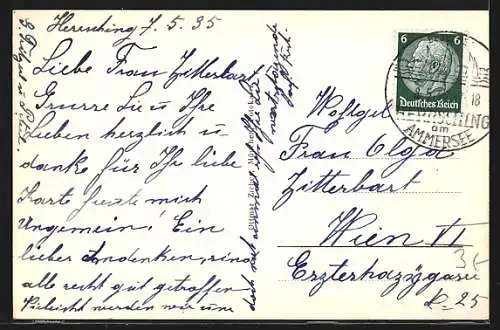 Herrsching 7.5.35
Liebe Frau Zitterbart
Grüsse Sie u Ihre
Lieben herzlich u-
danke für Ihr liebe
Karte freute mich
Ungemein! Ein
lieber Andenken, sind
alle recht gut getroffen
Vieleicht werden wir uns
doch noch einmal
6 6
Deutsches Reich
HERRSCHING
am
AMMERSEE
18
Wohlgeb
Frau Olga
Zitterbart
Wien VI
Eszterhazygasse
25